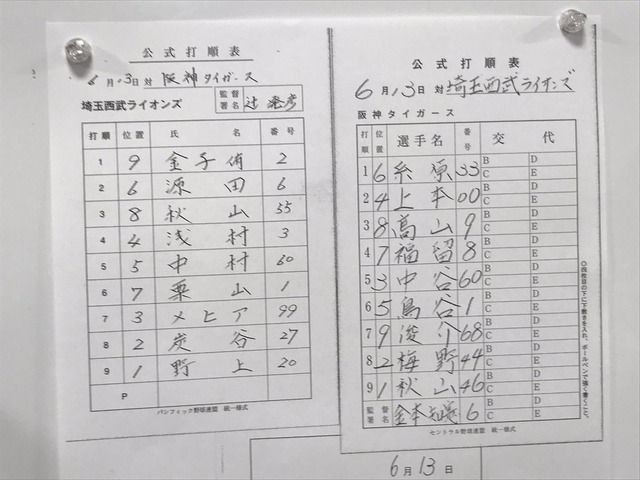 公式打順表
6月13日対 阪神タイガース
埼玉西武ライオンズ 監督署名 辻 発彦
打順 位置 氏名 番号
1 9 金子侑 2
2 6 源田 6
3 8 秋山 55
4 4 浅村 3
5 5 中村 60
6 7 栗山 1
7 3 メヒア 99
8 2 炭谷 27
9 1 野上 20
P
パシフィック野球連盟 統一様式
公式打順表
6月13日対 埼玉西武ライオンズ
阪神タイガース
打順 位置 選手名 番号 交代
1 6 糸原 33 B D C E
2 4 上本 00 B D C E
3 8 髙山 9 B D C E
4 7 福留 8 B D C E
5 3 中谷 60 B D C E
6 5 鳥谷 1 B D C E
7 9 俊介 68 B D C E
8 2 梅野 44 B D C E
9 1 秋山 46 B D C E
監督署名 金本知憲 6 B D C E
セントラル野球連盟 統一様式
○四枚目の下に下敷きを入れ、ボールペンで強く書くこと。
6月13日